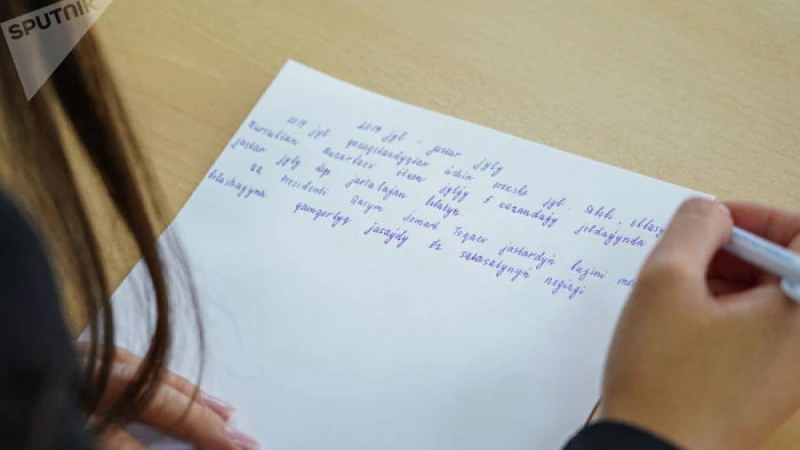 SPUTNIK
2019 jyl - jastar jyly
2019 jyl qazaqstandyqtar úshin erekshe jyl. Sebebi, elbasy
Nursultan Nazarbaev ótken jyly 5 qazandaǵy joldaýynda
jastar jyly dep jarialaǵan bolatyn.
QR Prezidenti Qasym Jomart Toqaev jastardyń
bolashaǵyna qamqorlyq jasaýdy óz saıasatynyń negizgi